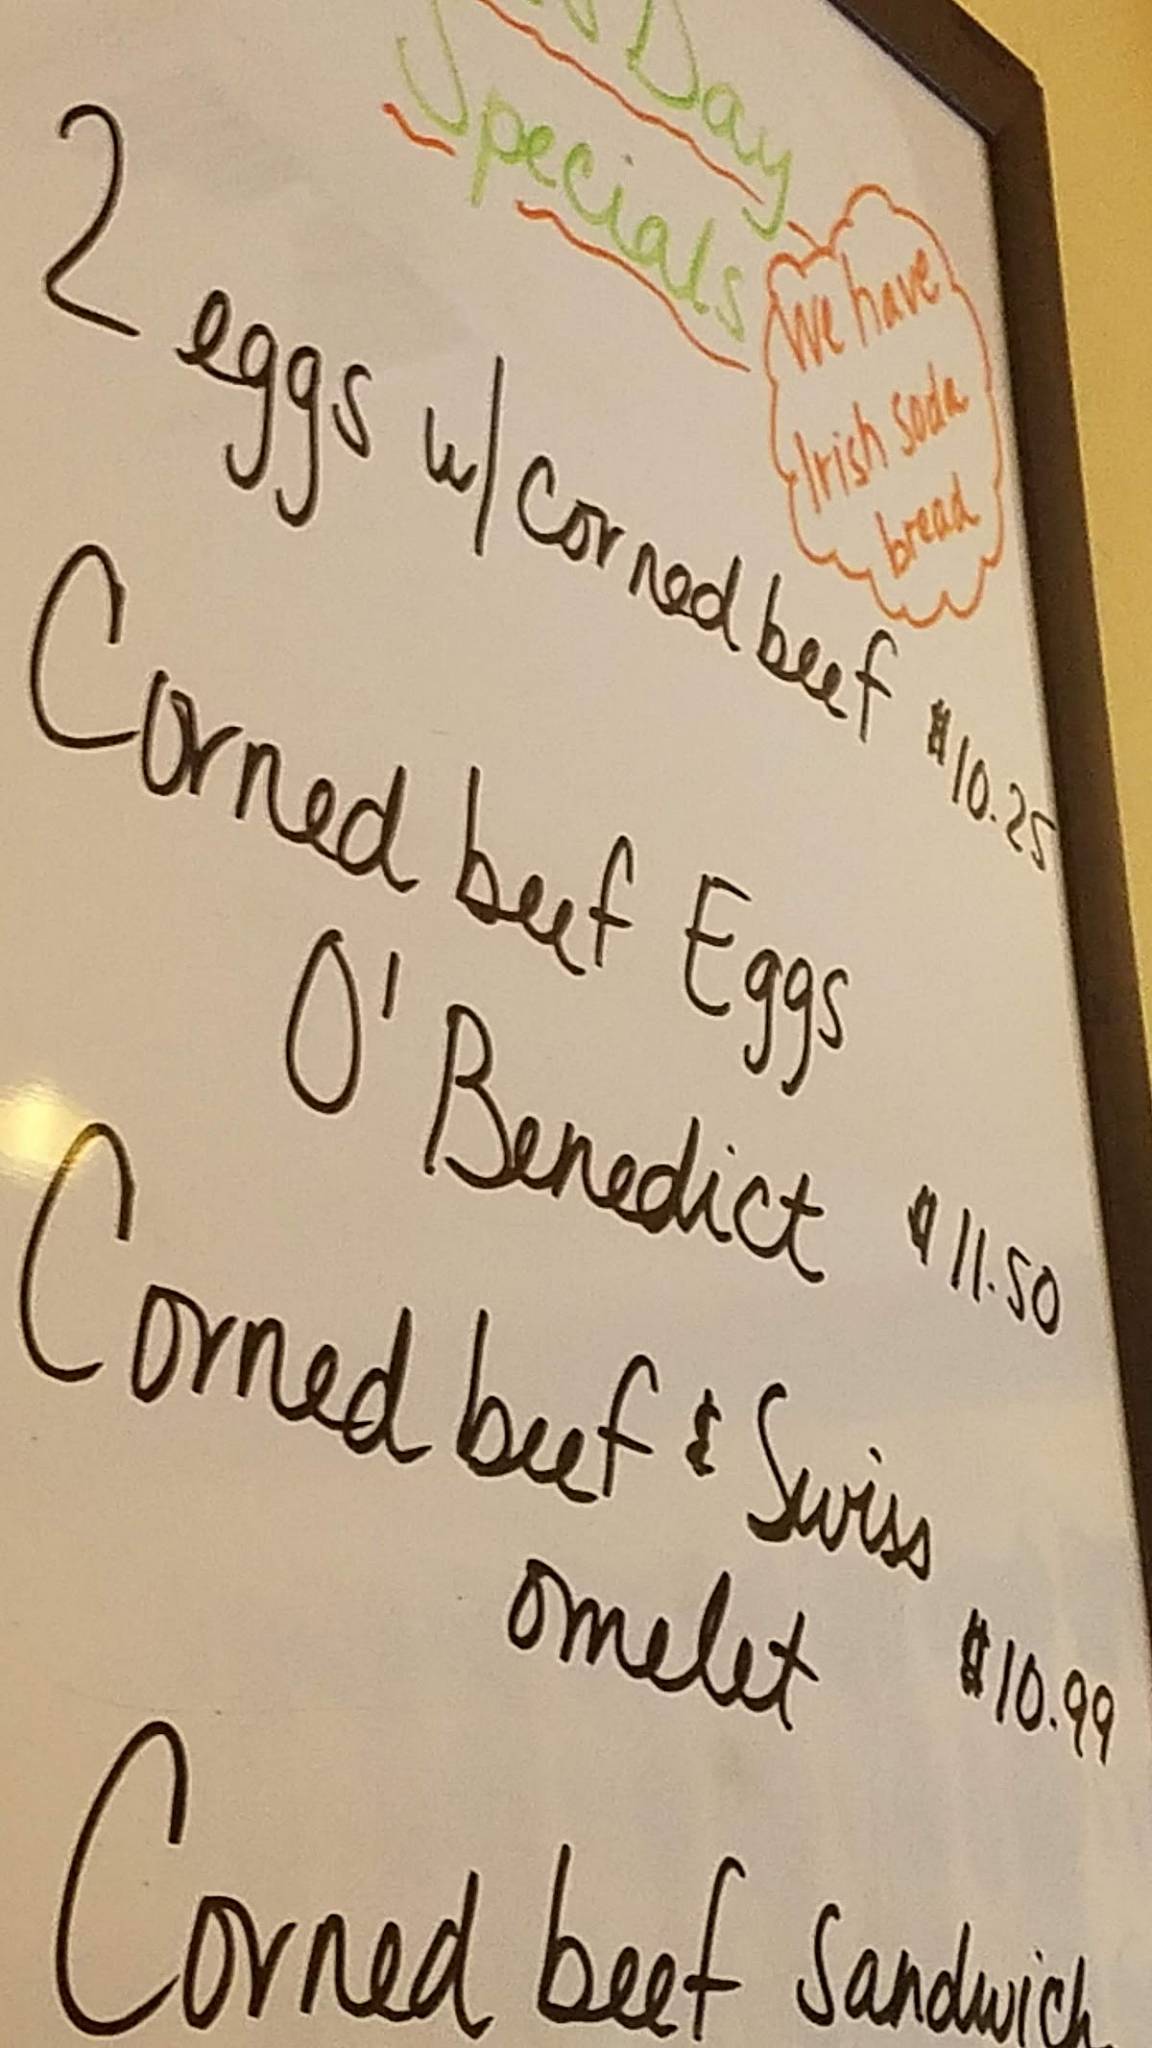 Day
Specials
We have
Irish soda
bread
2 eggs w/ corned beef $10.25
Corned beef Eggs
O'Benedict $11.50
Corned beef & Swiss
omelet $10.99
Corned beef Sandwich